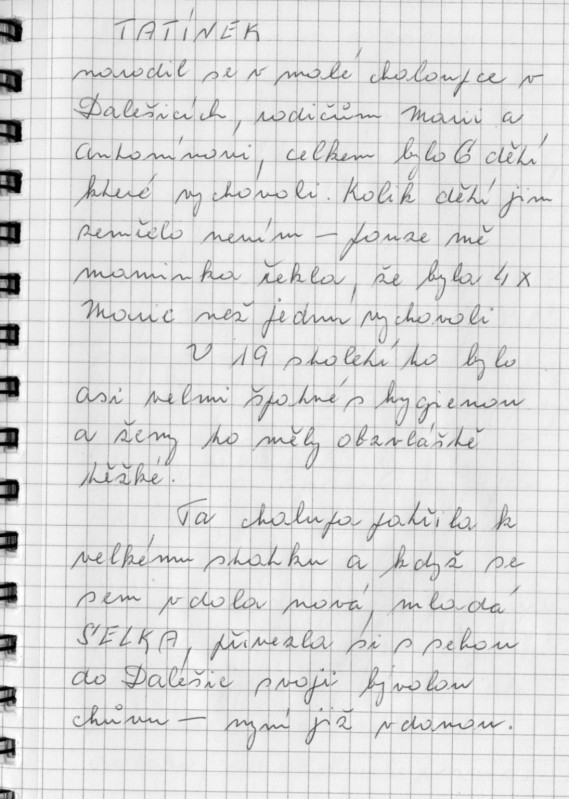 TATÍNEK
narodil se v malé chaloupce v
Dalešicích, rodičům Marii a
Antonínovi, celkem bylo 6 dětí
které vychovali. Kolik dětí jim
zemřelo nevím – pouze mě
maminka řekla, že byla 4x
Marie než jednu vychovali
V 19 století to bylo
asi velmi špatné s hygienou
a ženy to měly obzvláště
těžké.
Ta chalupa patřila k
velkému statku a když se
sem vdala nová, mladá
SELKA, přivezla si s sebou
do Dalešic svoji bývalou
chůvu – nyní již vdovou.